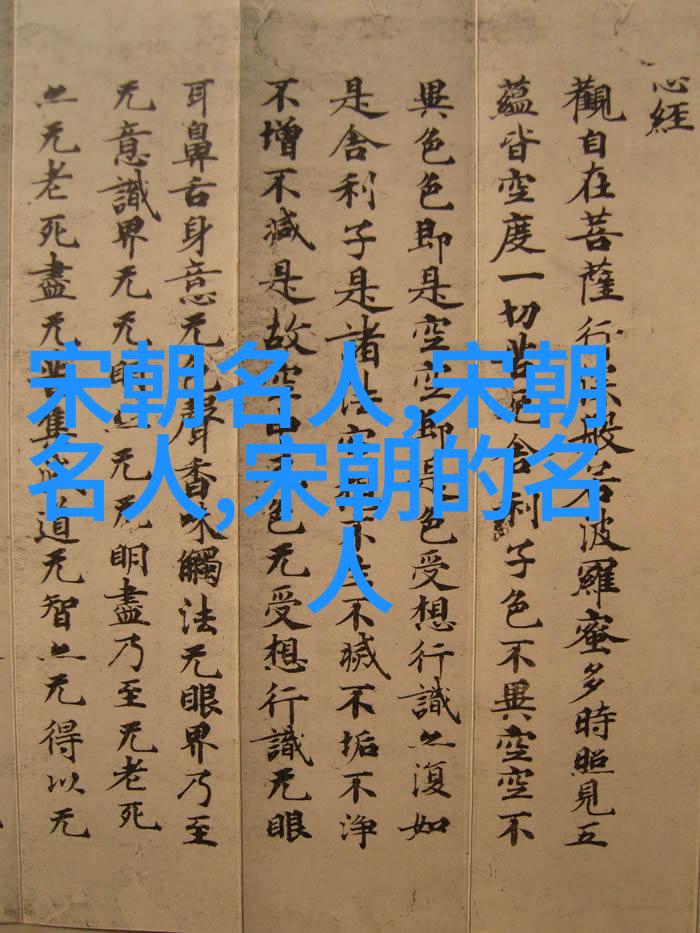 心經
觀自在菩薩行深般若波羅蜜多時照見五
蘊皆空度一切苦厄舍利子色不異空空不
異色色即是空空即是色受想行識亦復如
是舍利子是諸法空不不滅不垢不淨
不增不減是故空中色无受想行識无眼
耳鼻舌身意无色聲香味觸法无眼界乃至
无意識界无无明亦无无明盡乃至无老死
亦无老死盡无苦集滅道无智亦无得以无
宋朝名人,宋朝
名人,宋朝的名
人